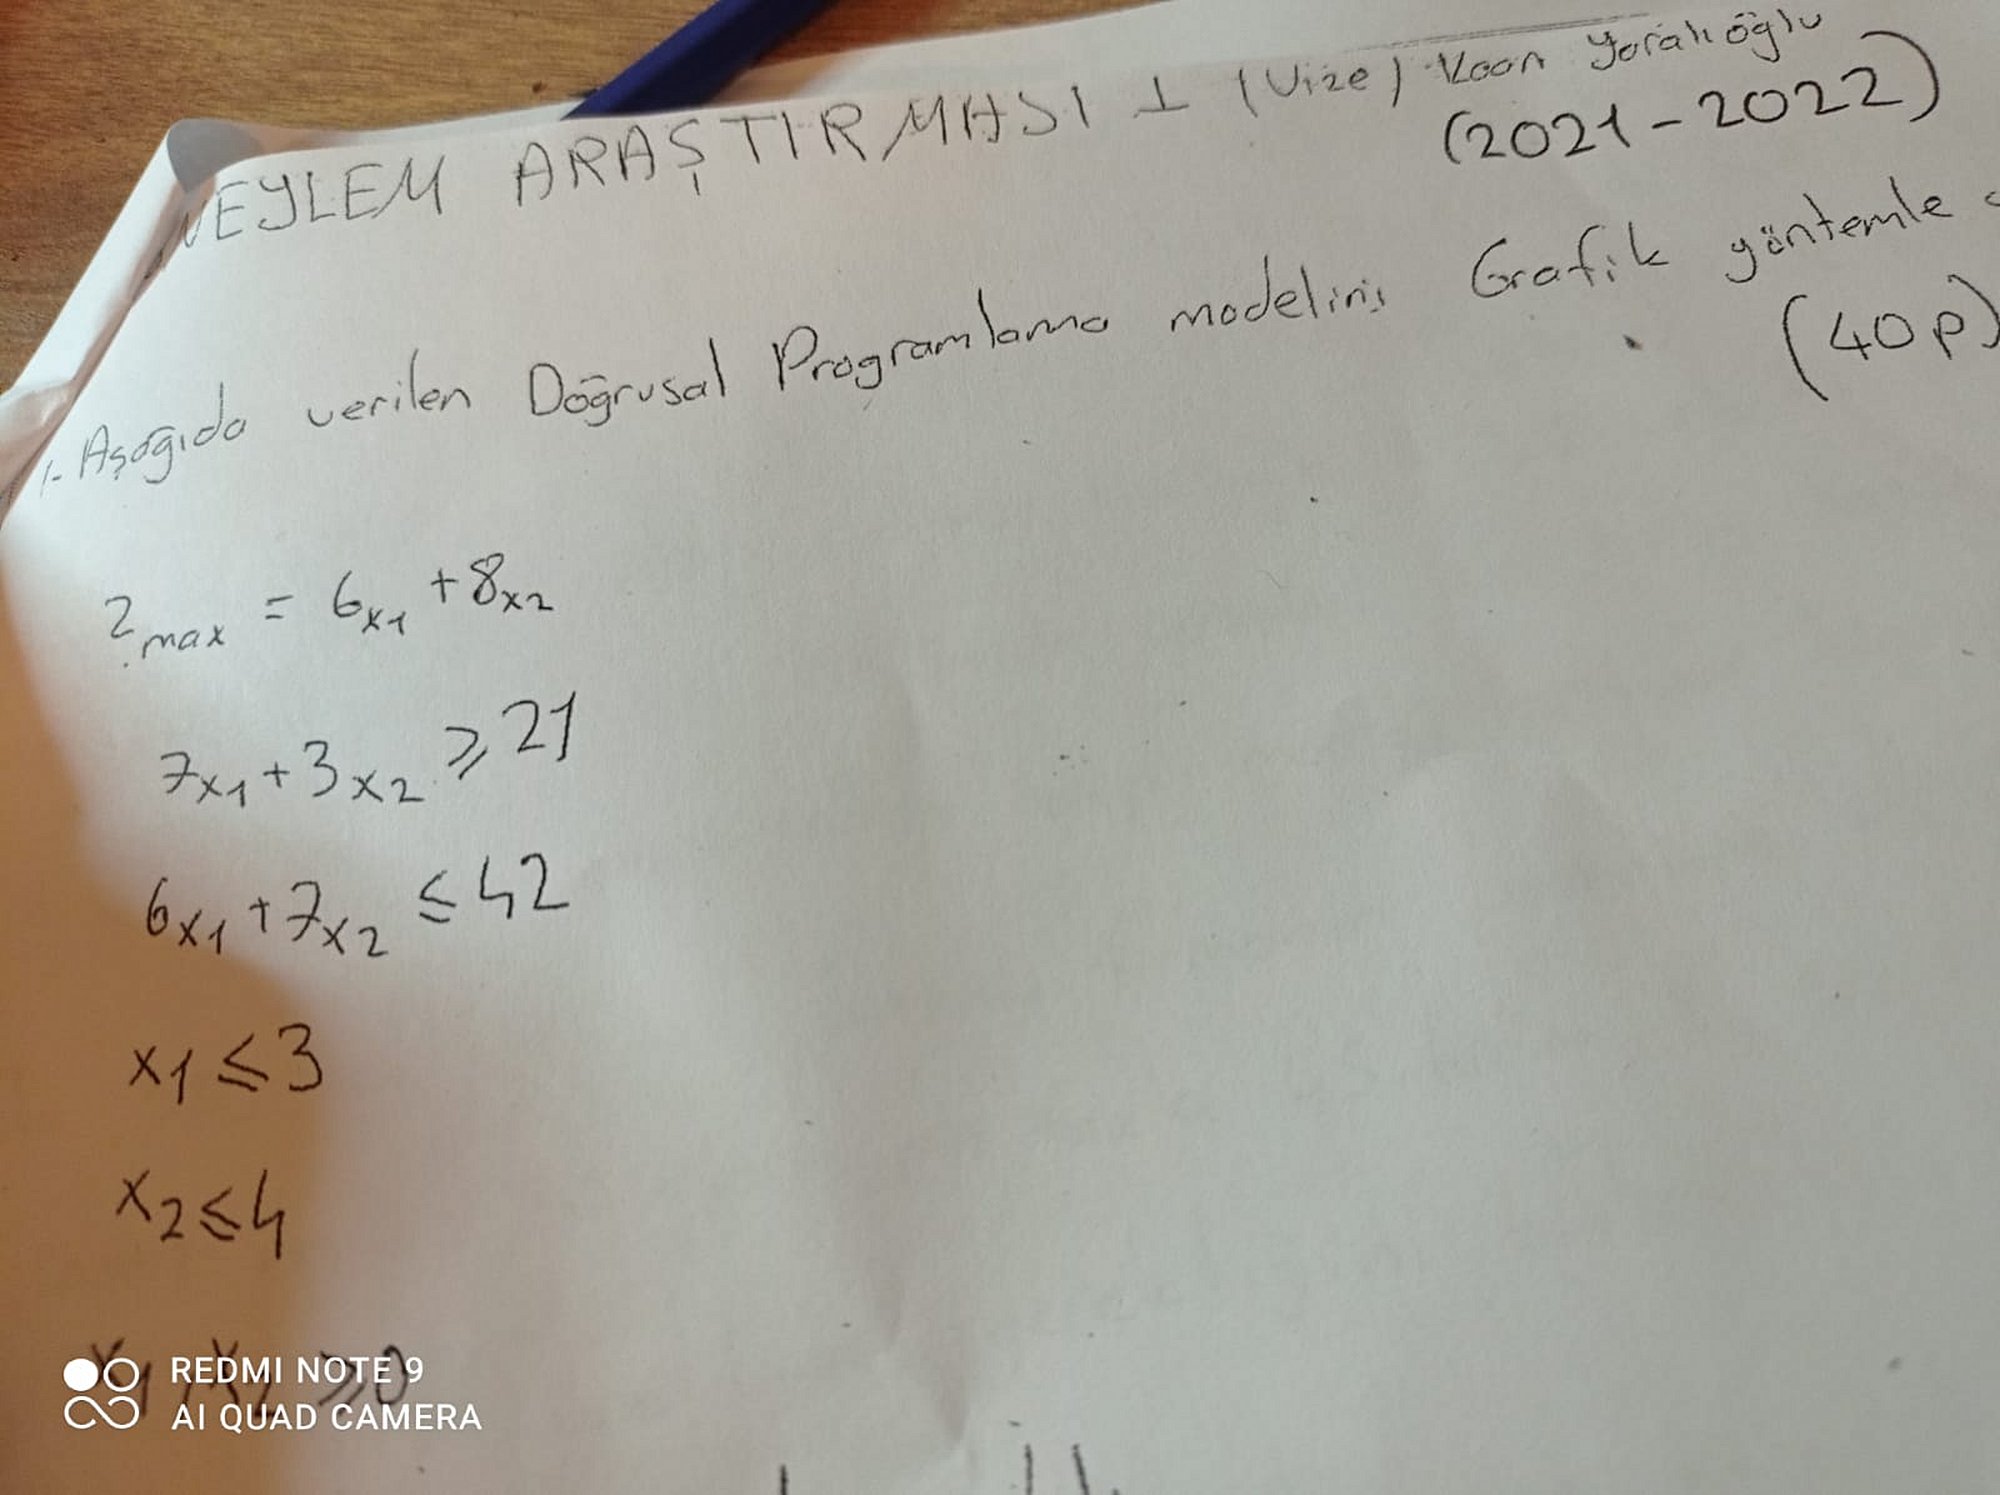 YEYLEM ARAŞTIRMASI I (Vize) Kaan Yaralıoğlu
(2021-2022)
1- Aşağıda verilen Doğrusal Programlama modelini Grafik yöntemle
(40p)
Zmax = 6x1 + 8x2
7x1 + 3x2 ≥ 21
6x1 + 7x2 ≤ 42
x1 ≤ 3
x2 ≤ 4
x1, x2 ≥ 0
REDMI NOTE 9
AI QUAD CAMERA